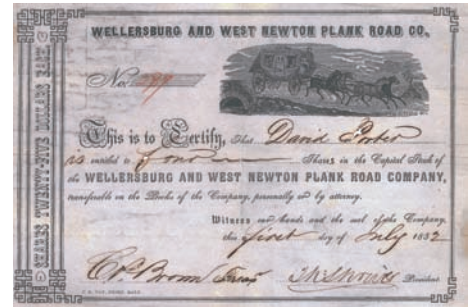 WELLERSBURG AND WEST NEWTON PLANK ROAD CO.,
No. 299
SHARES TWENTY-FIVE DOLLARS EACH
This is to Certify, That David Porter
is entitled to four Shares in the Capital Stock of
the WELLERSBURG AND WEST NEWTON PLANK ROAD COMPANY,
transferable on the Books of the Company, personally or by attorney.
Witness our hands and the seal of the Company,
this first day of July 1852
Brown Treas President